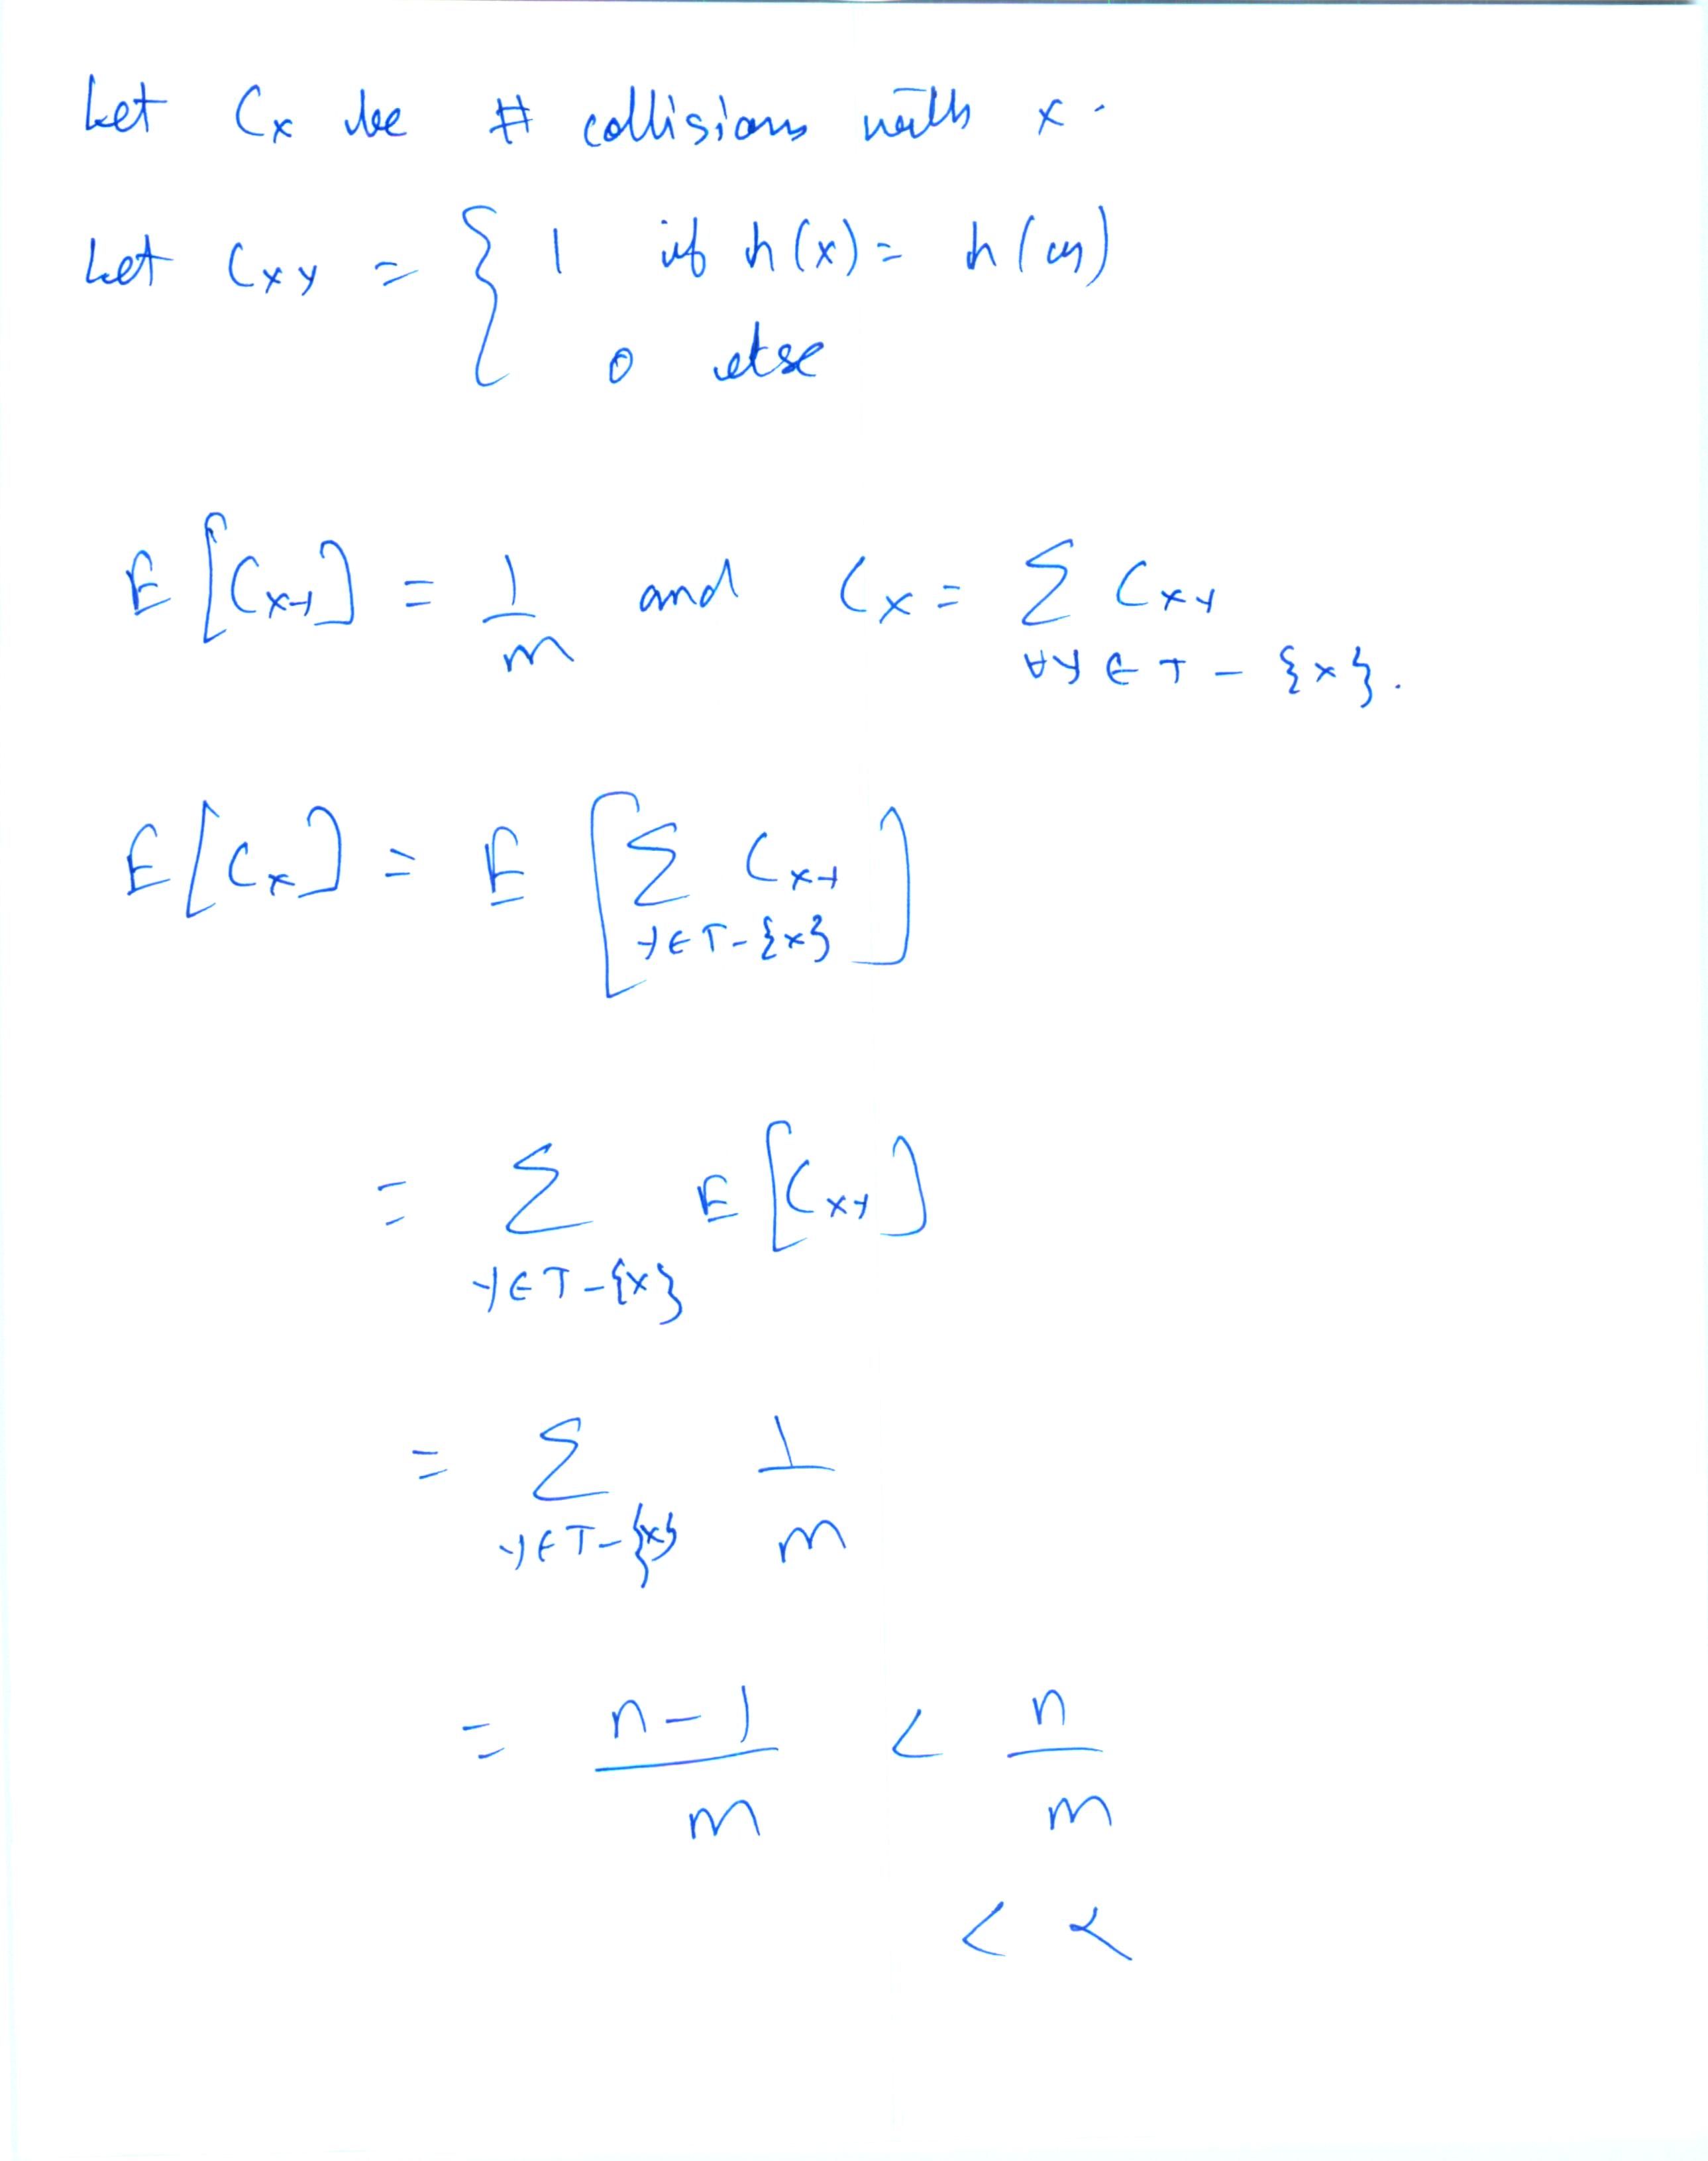 Let Cx be # collisions with x.
Let Cxy = { 1 if h(x) = h(y)
0 else
E[Cxy] = 1/m and Cx = Σ Cxy
∀y ∈ T - {x}.
E[Cx] = E [Σ Cxy]
y ∈ T - {x}
= Σ E[Cxy]
y ∈ T - {x}
= Σ 1/m
y ∈ T - {x}
= n-1/m < n/m
< α